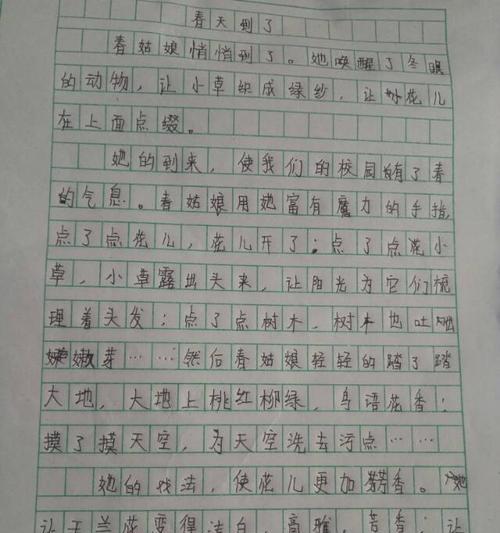 春天到了
春姑娘悄悄到了。她唤醒了冬眠
的动物，让小草织成绿纱，让小花儿
在上面点缀。
她的到来，使我们的校园有了春
的气息。春姑娘用她富有魔力的手指，
点了点花儿，花儿开了；点了点小
草，小草露出头来，让阳光为它们梳
理着头发；点了点树木，树木也吐
嫩芽……然后春姑娘轻轻的踏了踏
大地，大地上桃红柳绿，鸟语花香；
摸了摸天空，为天空洗去污点……
她的戏法，使花儿更加芳香。她
让玉兰花变得洁白，高雅，芳香；让